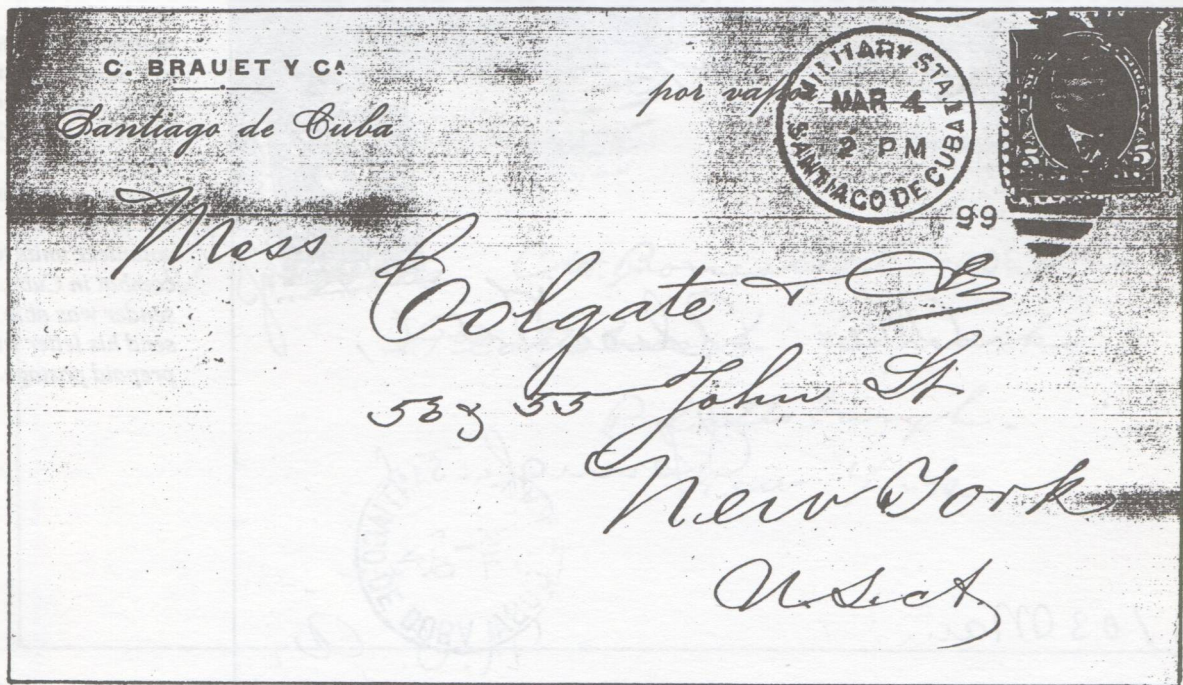 C. BRAUET Y Cª
Santiago de Cuba
por vapor
MILITARY STA. 1
MAR 4
2 PM
SANTIAGO DE CUBA
99
5 5
Mess
Colgate &
53 y 55 John St
New York
U.S.A.